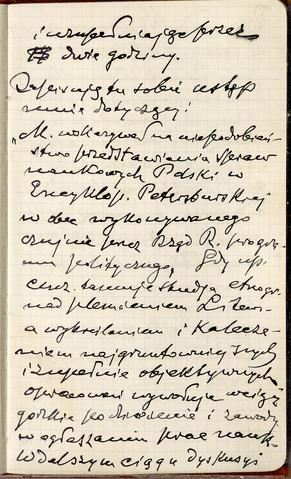 i uzupełniające przez
dwie godziny.
Zapisuję tu sobie ustęp
mnie dotyczący:
„M. wskazywał na niepodobień-
stwo przedstawiania spraw
naukowych Polski w
Encyklop. Petersburskiej
wobec wykonywanego
czujnie przez Rząd R. progra-
mu politycznego. Gdy np.
cenz. tamuje studja etnogr.
nad plemieniem Litew-
a wykreślaniem i kalecze-
niem najgruntowniejszych
i zupełnie objektywnych
opracowań wywołuje wciąż
gorzkie podziwienie i zawody
w ogłaszaniu prac nauk.
W dalszym ciągu dyskusji